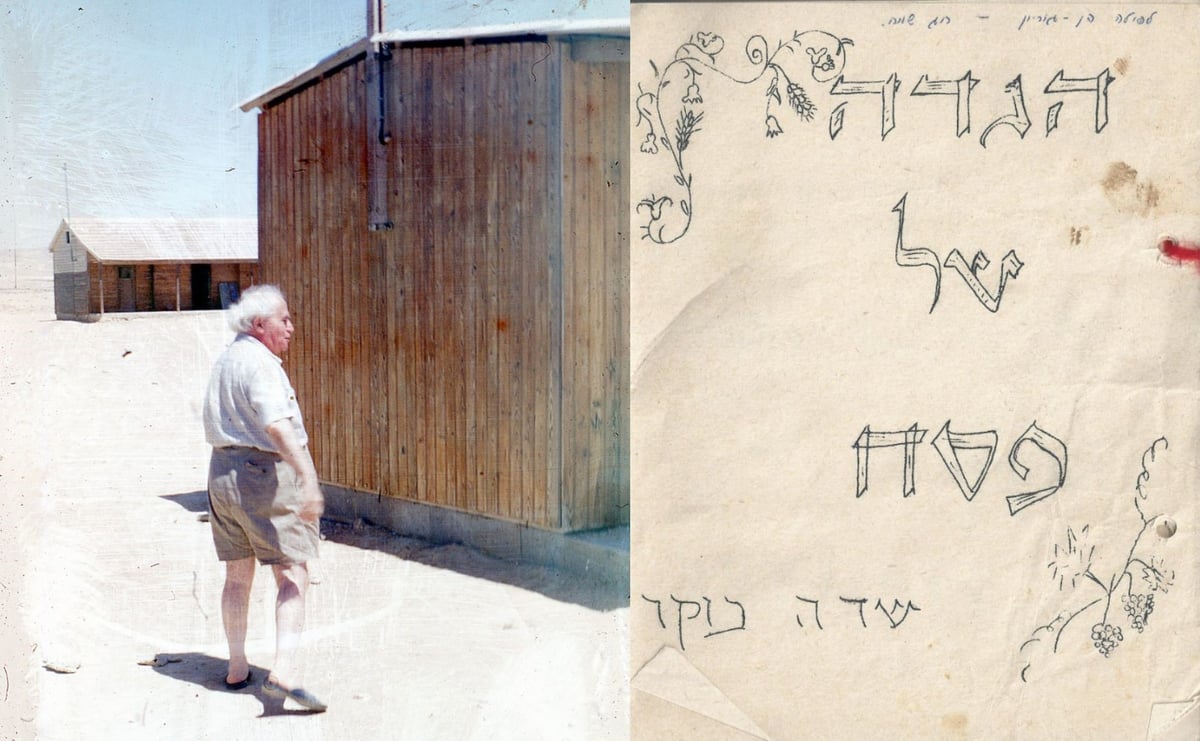 לפולה בן-גוריון - חג שמח.
הגדה
של
פסח
שדה בוקר